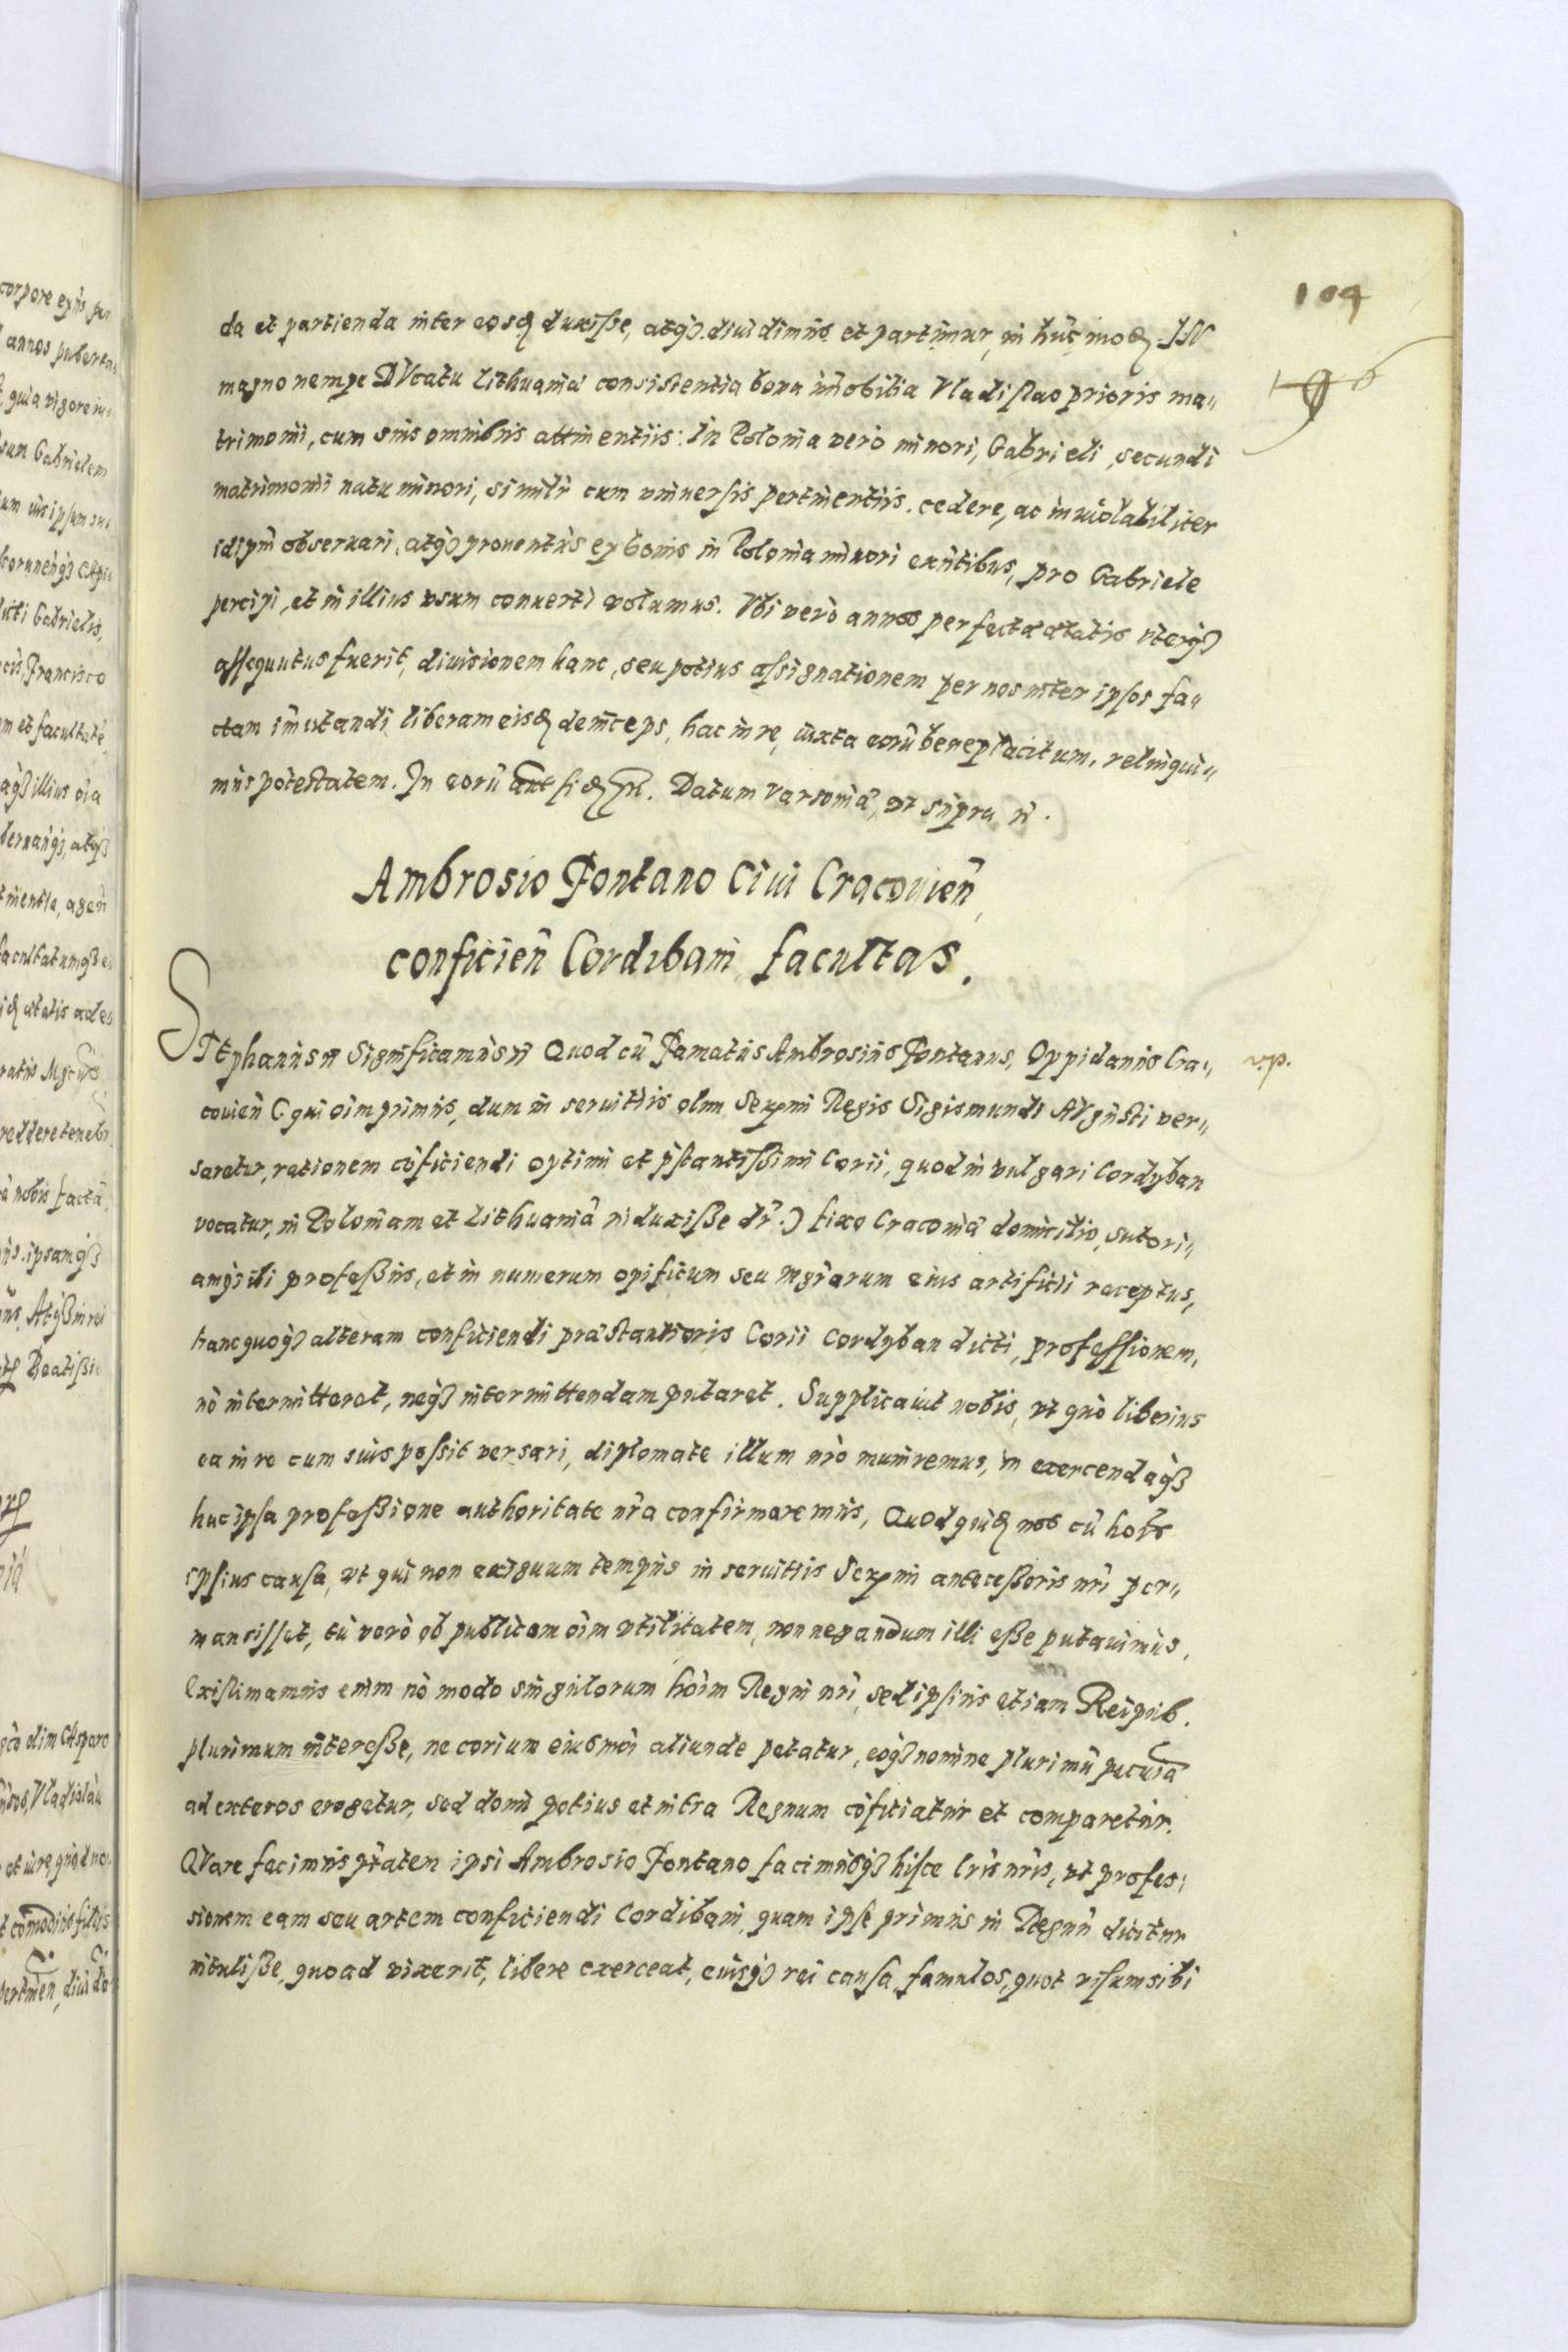 104
196
da et partienda inter eosd duxisse, atq3 diuidimus et partimur, in hūc, mod. IN
magno nempe DVcatu Lithuaniæ consistentia bona im̄obilia Vladislao prioris ma„
trimonii, cum suis omnibus attinentiis: In Polonia vero minori, Gabrieli, secundi
matrimonii natu minori, similr̄ cum vniuersis pertinentiis. cedere, ac inuiolabiliter
id ipm̄ obseruari, atq3 prouentus ex bonis in Polonia minori exn̄tibus, pro Gabriele
percipi, et in illius vsum conuerti volumus. Vbi vero annos perfectæ ætatis vterq3
assequutus fuerit, diuisionem hanc, seu potius assignationem per nos inter ipsos fa„
ctam im̄utandi liberam eisd deinceps, hac in re, iuxta eorū beneplacitum, relinqui„
mus potestatem. In eorū aut̄ fid. Datum Varsouiæ, vt supra
Ambrosio Fontano Ciui Cracouien̄,
conficien̄ Cordibani facultas.
STephanus Significamus Quod cū Famatus Ambrosius Fontanus, Oppidanus Cra„
v.p.
couien̄ (: qui oim̄ primus, dum in seruitiis olim Serm̄i Regis Sigismundi AVgusti ver„
saretur, rationem cōficiendi optimi et p̄stantissimi Corii, quod in vulgari Cordyban
vocatur, in Poloniam et Lithuaniā induxisse dr̄ :) fixo Cracouiæ domicilio, sutori„
amq3 ibi professus, et in numerum opificum seu mgr̄orum eius artificii receptus,
hanc quoq3 alteram conficiendi præstantioris Corii Cordyban dicti, professionem,
nō intermitteret, neq3 intermittendam putaret. Supplicauit nobis, vt quo liberius
ea in re cum suis possit versari, diplomate illum nr̄o muniremus, in exercendaq3
hac ipsa professione authoritate nr̄a confirmaremus, Quod quid nos cū
ipsius causa, vt qui non exiguum tempus in seruitiis Serm̄i antecessoris nr̄i per„
mansisset, tū vero ob publicam oim̄ vtilitatem, non negandum illi esse putauimus.
Existimamus enim nō modo singulorum hoīm Regni nr̄i, sed ipsius etiam Reipub.
plurimum interesse, ne corium eiusmōi aliunde petatur, eoq3 nomine plurimū pecuīa
ad exteros erogetur, sed domi potius et intra Regnum cōficiatur et comparetur.
QVare facimus ptātem ipsi Ambrosio Fontano facimusq3 hisce lr̄is nr̄is, vt profes„
sionem eam seu artem conficiendi Cordibani, quam ipse primus in Regnū dicitur
intulisse, quoad vixerit, libere exerceat, eiusq3 rei causa, famulos, quot visum sibi